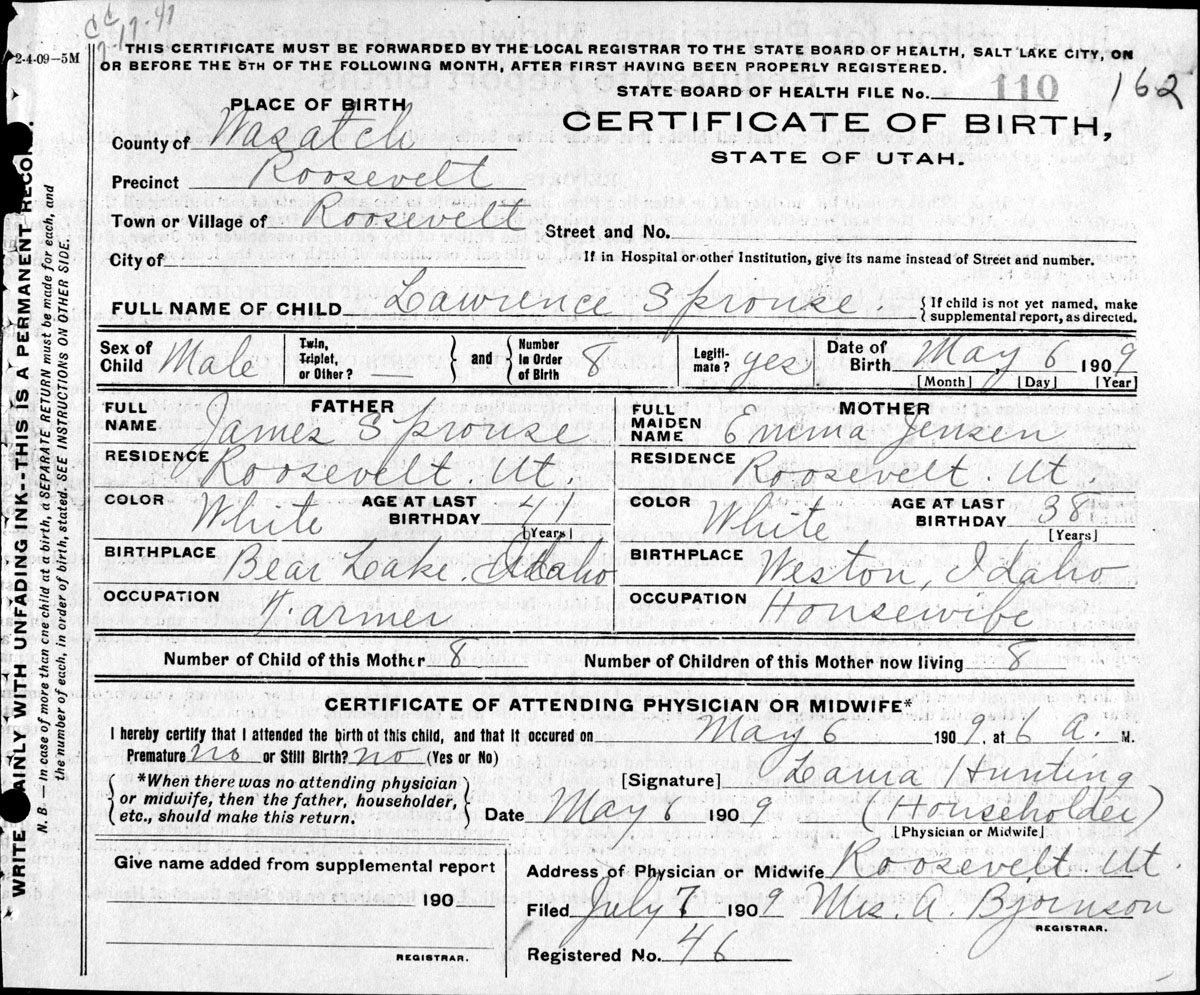 CC
12-17-41
2-4-09—5M
THIS CERTIFICATE MUST BE FORWARDED BY THE LOCAL REGISTRAR TO THE STATE BOARD OF HEALTH, SALT LAKE CITY, ON
OR BEFORE THE 5TH OF THE FOLLOWING MONTH, AFTER FIRST HAVING BEEN PROPERLY REGISTERED.
STATE BOARD OF HEALTH FILE No. 110 162
PLACE OF BIRTH
CERTIFICATE OF BIRTH,
STATE OF UTAH.
County of Wasatch
Precinct Roosevelt
Town or Village of Roosevelt
Street and No.
City of
If in Hospital or other Institution, give its name instead of Street and number.
FULL NAME OF CHILD Lawrence Sprouse. { If child is not yet named, make
supplemental report, as directed.
Sex of Child Male Twin, Triplet, or Other? — } and { Number in Order of Birth 8 Legiti- mate? yes Date of Birth May 6 1909
[Month] [Day] [Year]
FATHER MOTHER
FULL NAME James Sprouse FULL MAIDEN NAME Emma Jensen
RESIDENCE Roosevelt. Ut. RESIDENCE Roosevelt. Ut.
COLOR White AGE AT LAST BIRTHDAY 41 [Years] COLOR White AGE AT LAST BIRTHDAY 38 [Years]
BIRTHPLACE Bear Lake. Idaho BIRTHPLACE Weston, Idaho
OCCUPATION Farmer OCCUPATION Housewife
Number of Child of this Mother 8 Number of Children of this Mother now living 8
CERTIFICATE OF ATTENDING PHYSICIAN OR MIDWIFE*
I hereby certify that I attended the birth of this child, and that it occured on May 6 1909, at 6 a. M.
Premature no or Still Birth? no (Yes or No)
*When there was no attending physician
or midwife, then the father, householder,
etc., should make this return.
[Signature] Laura Hunting
Date May 6 1909 (Householder)
[Physician or Midwife]
Give name added from supplemental report
190
REGISTRAR.
Address of Physician or Midwife Roosevelt. Ut
Filed July 7 1909 Mrs. A. Bjornson
REGISTRAR.
Registered No. 46
WRITE PLAINLY WITH UNFADING INK--THIS IS A PERMANENT RECORD
N. B.—In case of more than one child at a birth, a SEPARATE RETURN must be made for each, and
the number of each, in order of birth, stated. SEE INSTRUCTIONS ON OTHER SIDE.